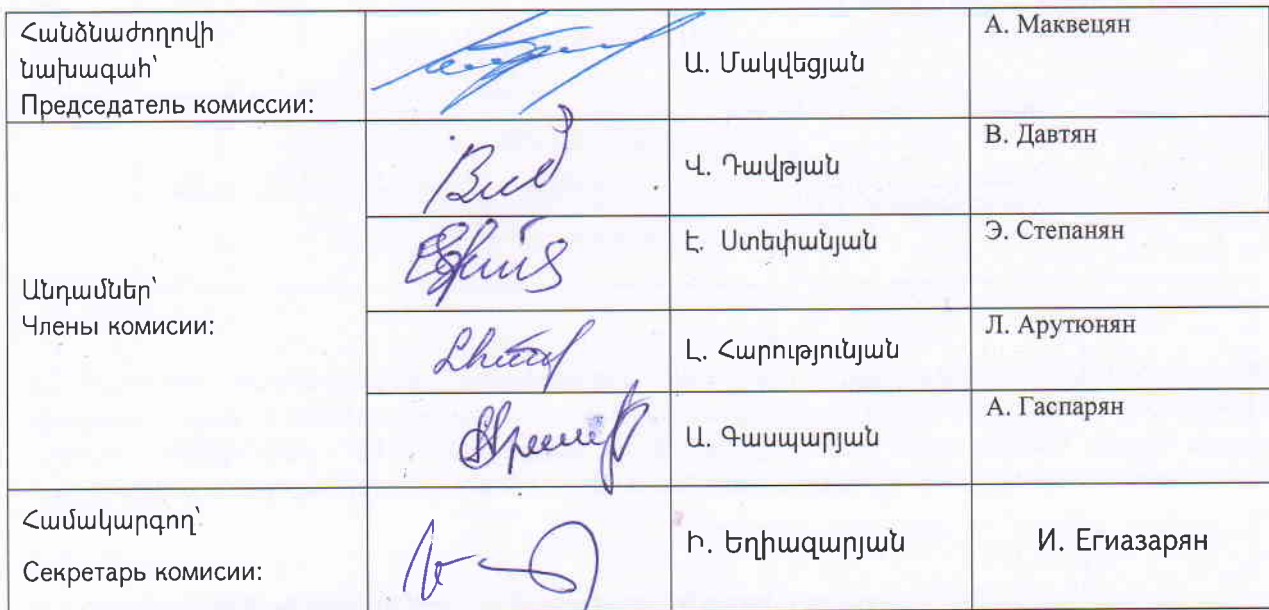 Հանձնաժողովի
նախագահ՝
Председатель комиссии:
Ա. Մակվեցյան
А. Маквецян
Վ. Դավթյան
В. Давтян
Անդամներ՝
Члены комисии:
Է. Ստեփանյան
Э. Степанян
Լ. Հարությունյան
Л. Арутюнян
Ա. Գասպարյան
А. Гаспарян
Համակարգող՝
Секретарь комисии:
Ի. Եղիազարյան
И. Егиазарян